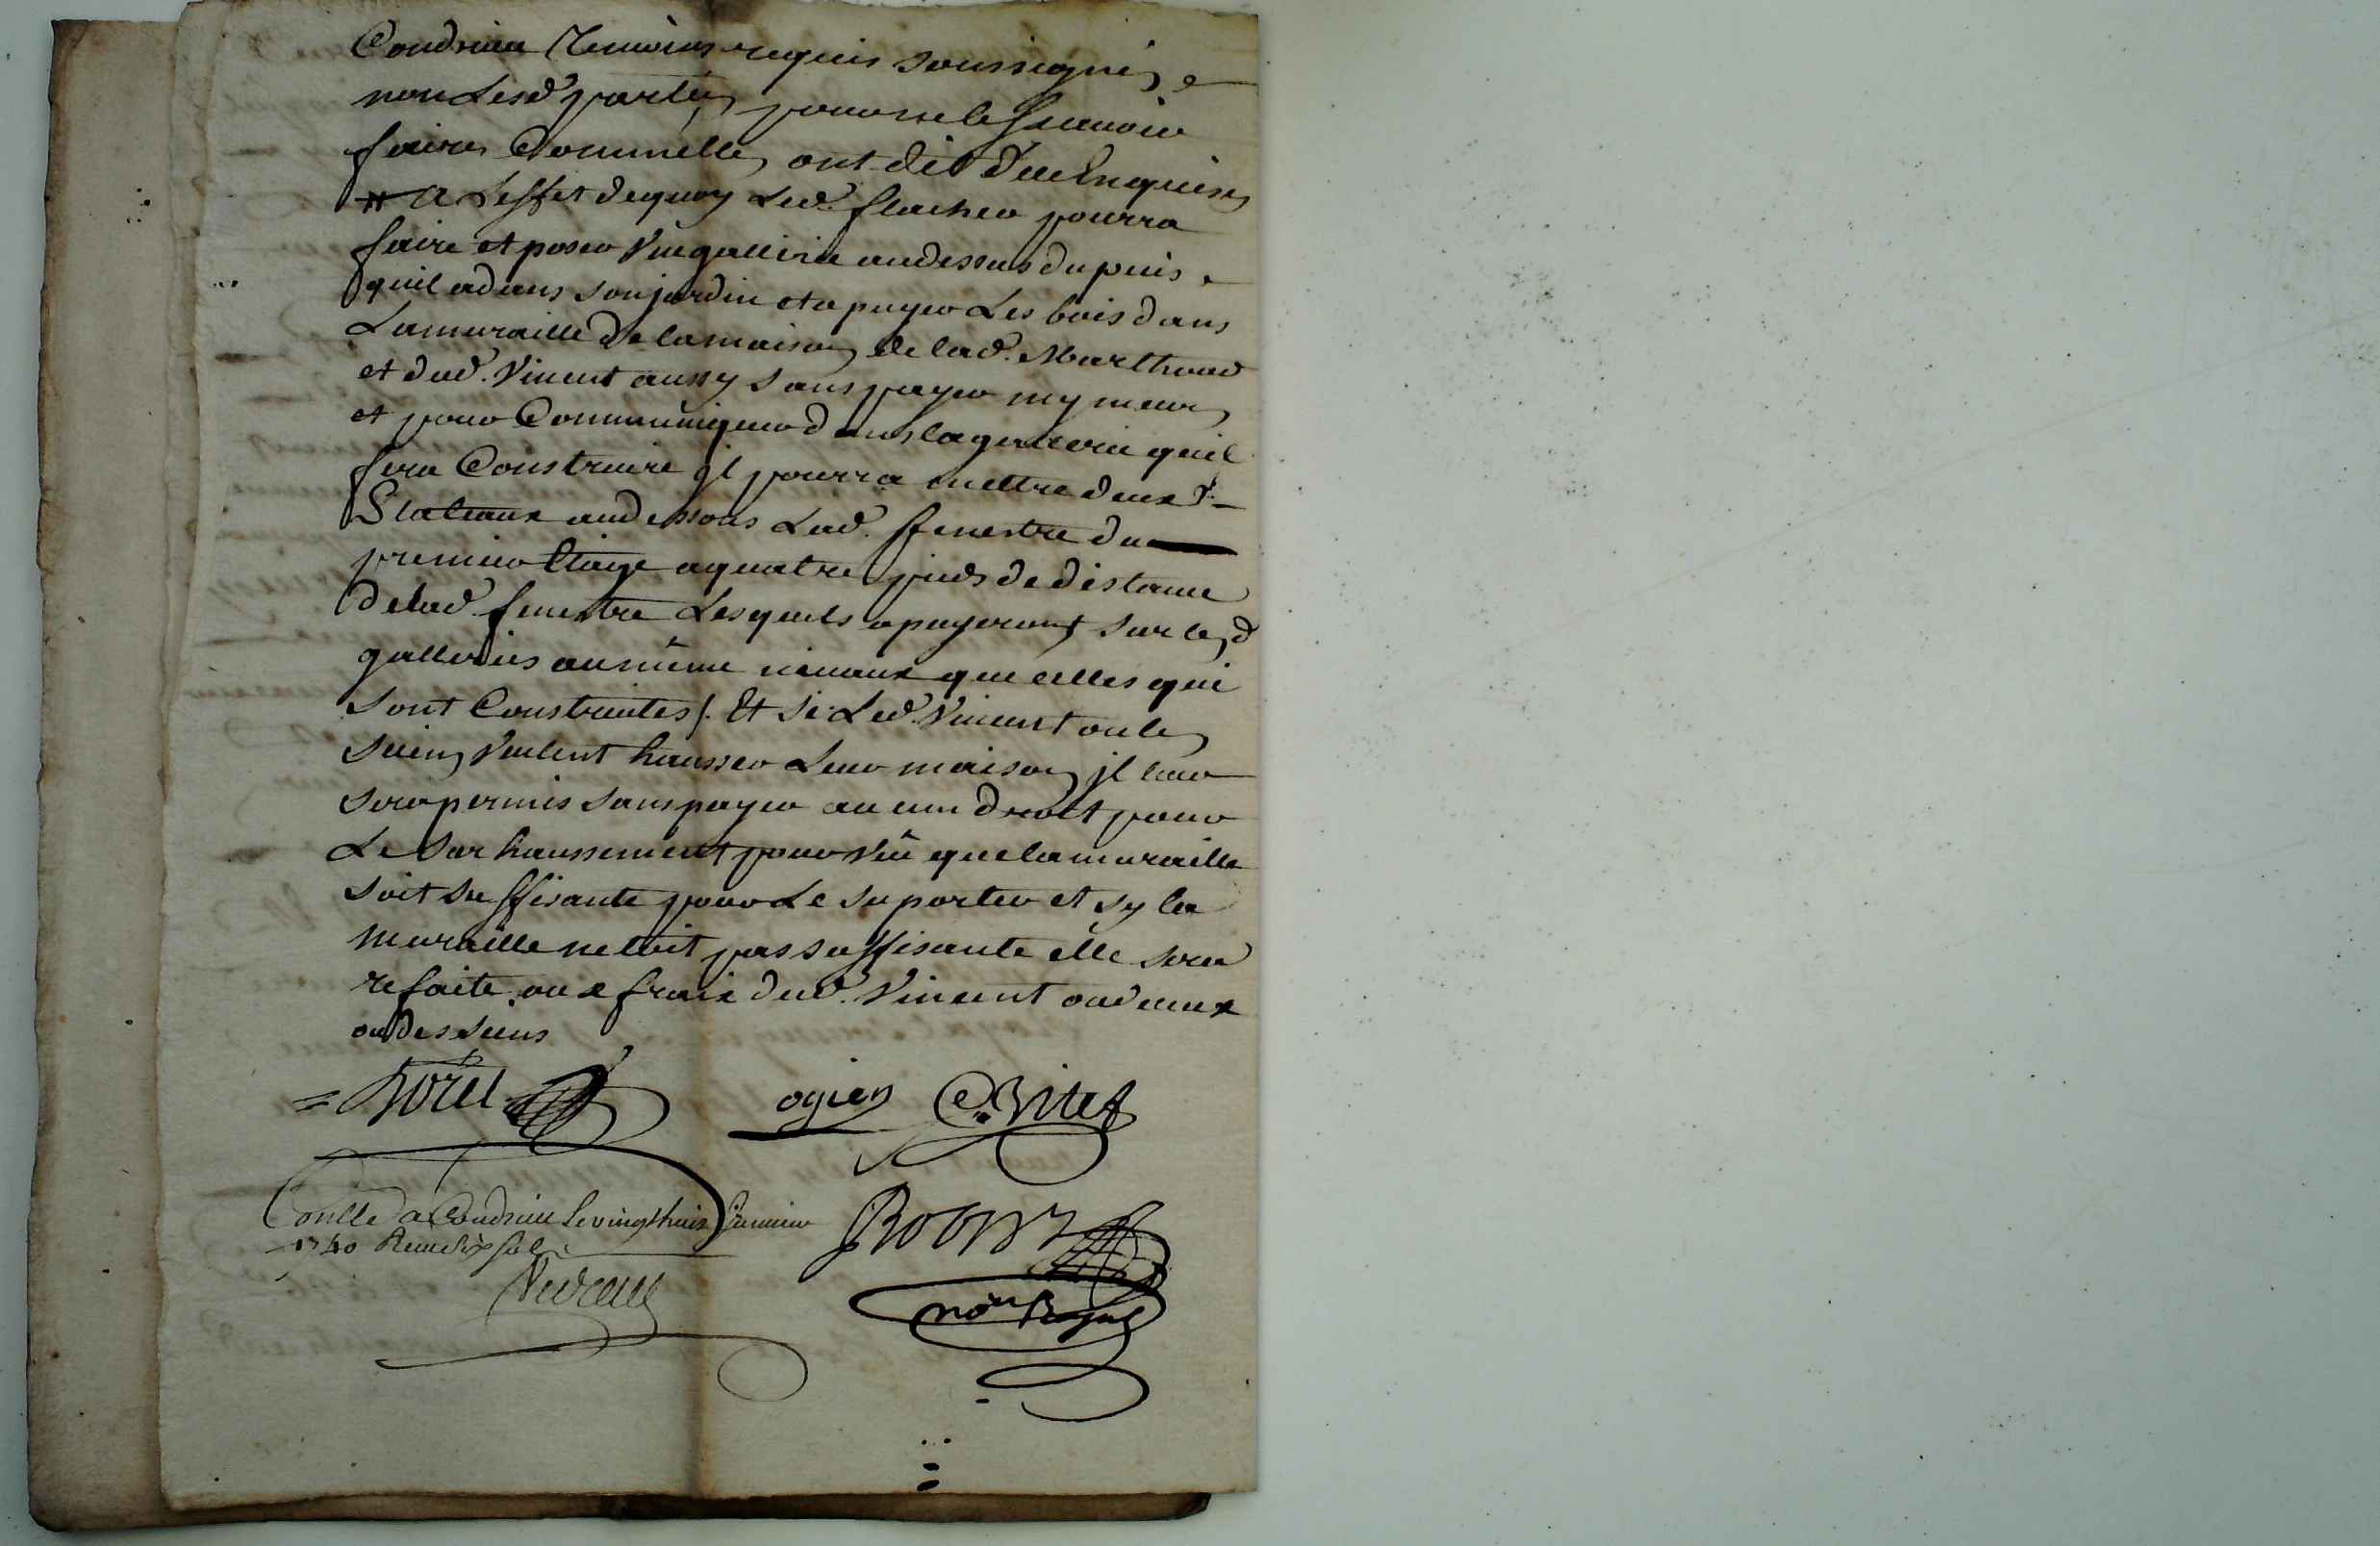 Condrieu temoins requis soussignés &
non lesd parties pour ne le scavoir
faire, Comme elles ont dit de ce Enquises
# a Leffet dequoy Led. flacher pourra
faire et poser Une gallerie audessus du puis
quil a dans son jardin et apuyer Les bois dans
La muraille de la maison de lad. Marthoud
et dud. Vincent aussy sans payer my meur
et pour Communiquer dans la gallerie quil
fera Construire jl pourra mettre deux
audessous Lad. fenestre du
premier Etage a quatre pieds de distance
de lad. fenestre Lesquels apuyeront sur lesd
galleries au même niveaux que celles qui
sont Construites /. Et si Led. Vincent ou les
siens veulent hausser Leur maison jl leur
sera permis sans payer aucun droit pour
Le sur haussement pour vû que la muraille
soit suffisante pour Le suporter et sy la
muraille netoit pas suffisante elle sera
refaite aux frais dud. Vincent
ou des siens
= Borel ogier C. Vitet
Conllé a Condrieu le vingt huit Janvier
1740 Reçu dix sols
nore Royal